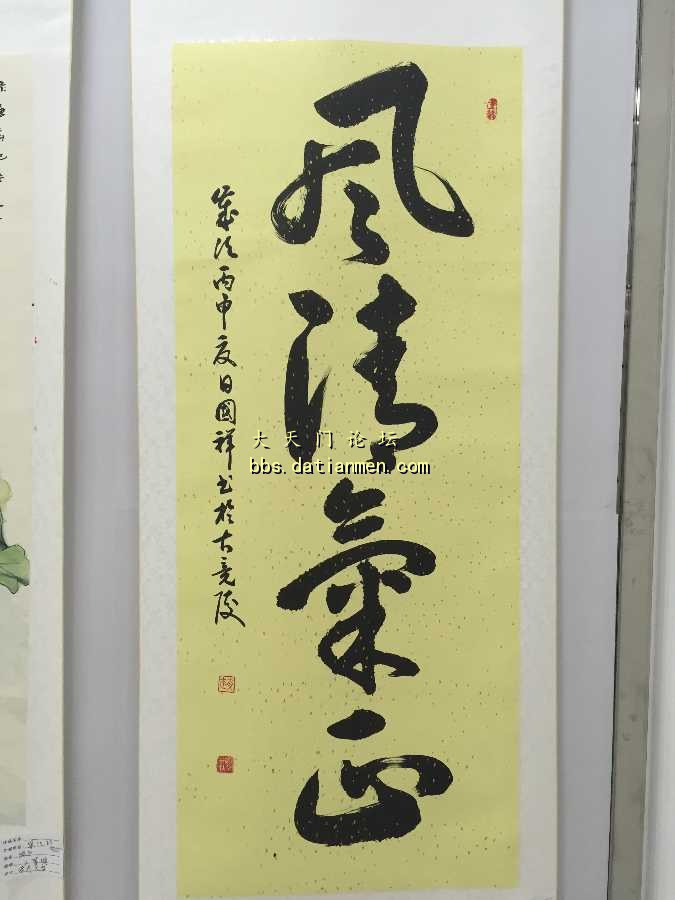 風清氣正
歲次丙申夏日國祥書於古竟陵
大天门论坛
bbs.datianmen.com